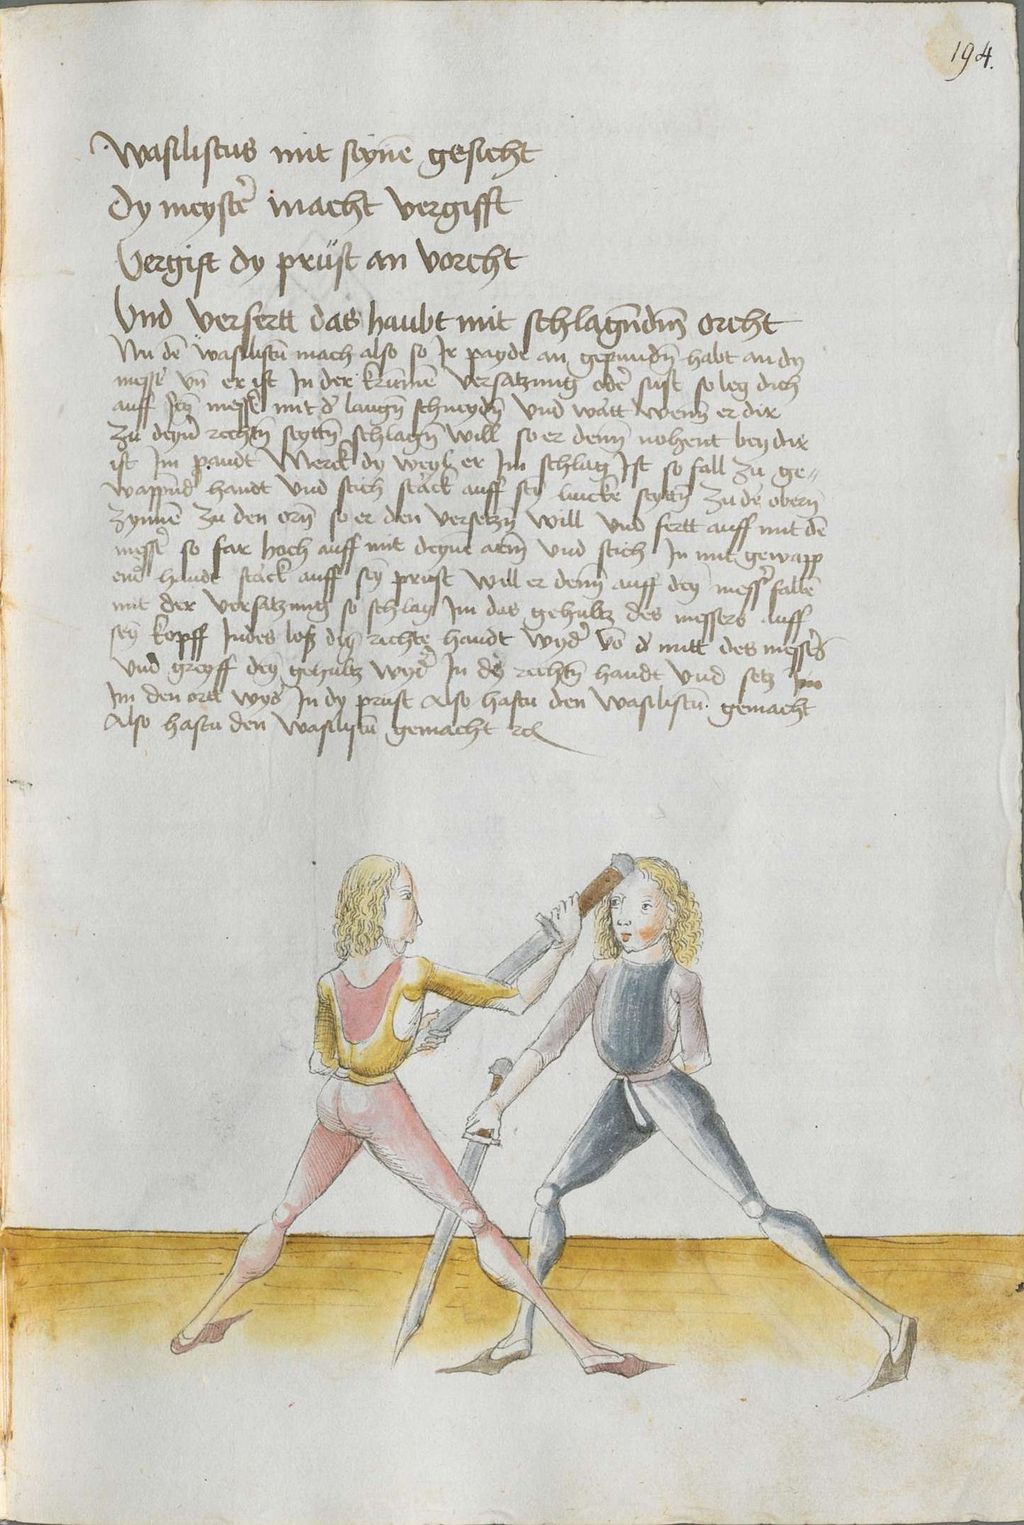 194.
Wasiliscus mit seynē gesicht
Dy meystē macht vergifft
Vergift dy prüst an vorcht
Und versertt das haubt mit schlagn̄dm̄ orcht
Nu dē wasiliscū mach also so Ir payde an gepundn̄ habt an dy
messē vn̄ er ist In der krumē versatzung odē sust so leg dich
auff sey messē mit d langn̄ schneydn̄ vnd wartt wenn̄ er dir
zu deynē rechtn̄ seyttn̄ schlagn̄ will so er denn̄ nohent bey dir
ist Im pandt Merck dy weyl er Im schlag Ist so fall zu ge-
wappendē handt vnd stich starck auff sey lincke seyttn̄ zu dē obern̄
zynnē zu den orn̄ so er den versetzn̄ will vnd fertt auff mit dē
messē so far hoch auff mit deynē arm̄ vnd stich In mit gewapp
endē handt starck auff sey prust will er denn̄ auff dey messē fallē
mit der versatzung so schlag Im das gehultz des messers auff
sey kopff Indes loß dy rechtē handt wydē vō d mitt des messēs
vnd greyff dey gehultz wydē In dy rechtn̄ handt vnd setz
Im den ortt wydē In dy prust Also hastu den wasiliscū gemacht
Also hastu den wasiliscū gemacht rc